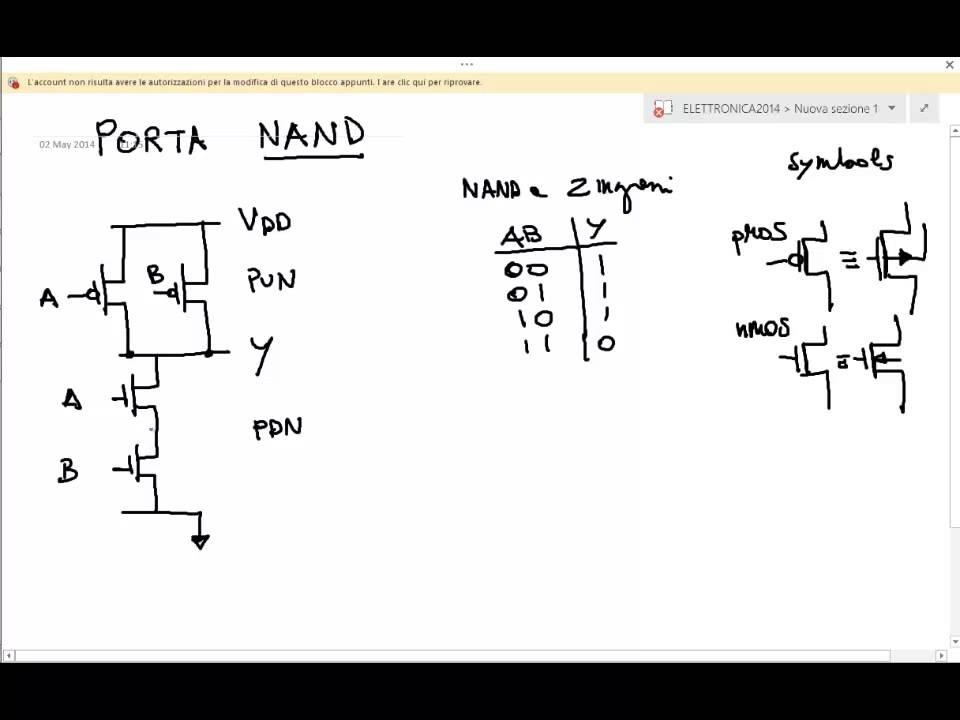 L'account non risulta avere le autorizzazioni per la modifica di questo blocco appunti. Fare clic qui per riprovare.
ELETTRONICA2014 > Nuova sezione 1
PORTA NAND
02 May 2014
symbols
NAND a 2 ingressi
VDD
AB Y
pMOS
B
PUN
00 1
A
01 1
10 1
nMOS
11 0
Y
A
PDN
B